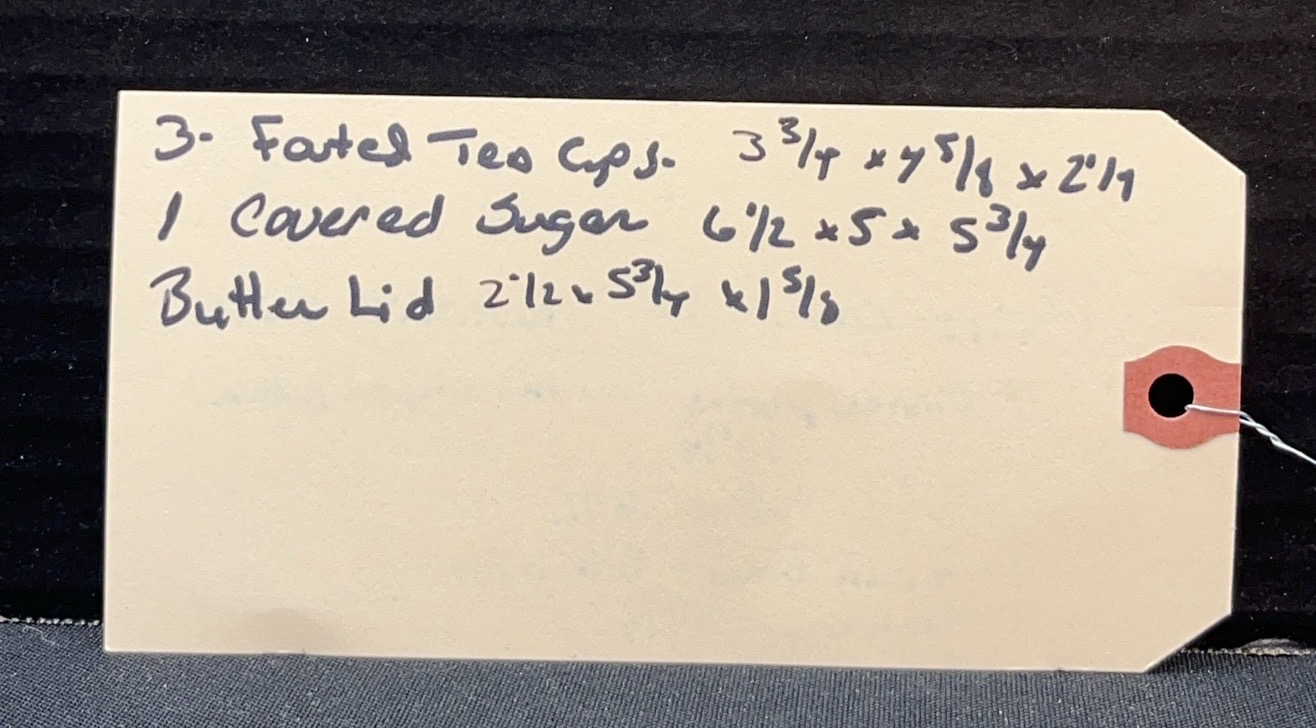 3- Footed Tea Cups. 3 3/4 x 4 5/8 x 2 1/4
1 Covered Sugar 6 1/2 x 5 x 5 3/4
Butter Lid 2 1/2 x 5 3/4 x 1 5/8